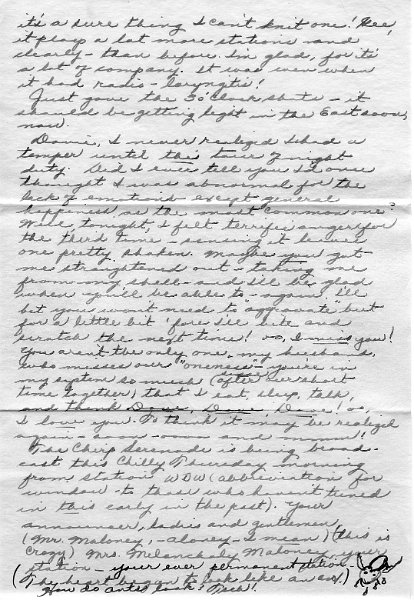 it's a sure thing I can't knit one! Gee,
it plays a lot more stations and
clearly - than before. I'm glad, for it's
a lot of company. It was even when
it had radio-laryngitis!
Just gave the 5 o'clock shots - it
should be getting light in the East soon,
now.
I never realized I had a
temper until this tour of night
duty. Did I ever tell you I once
thought I was abnormal for the
lack of emotions except general
happiness as the most common one?
Well, tonight, I felt terrific anger for
the third time - sensing it leaves
one pretty shaken. Maybe you got
me straightened out - taking me
from my shell - and I'll be glad
when you'll be able to - again. I'll
bet you won't need to "aggravate" but
for a little bit 'fore I'll bite and
scratch the next time! oo, I miss you!
You aren't the only one, my husband,
who misses our "oneness" - you're in
my system so much (after our short
time together) that I eat, sleep, talk,
and think
I love you. To think it may be realized
again - soon - and mmm!
The Cheep Serenade is being broad-
cast this Chilly Thursday morning
from station WDW (abbreviation for
window - to those who haven't tuned
in this early in the past). Your
announcer, ladies and gentlemen,
(Mr. Maloney, - aloney - I mean) (this is
crazy) Mrs. Melancholy Maloney, your
station - your ever permanent station -
(The heart began to look like an ant)
How do ants look?